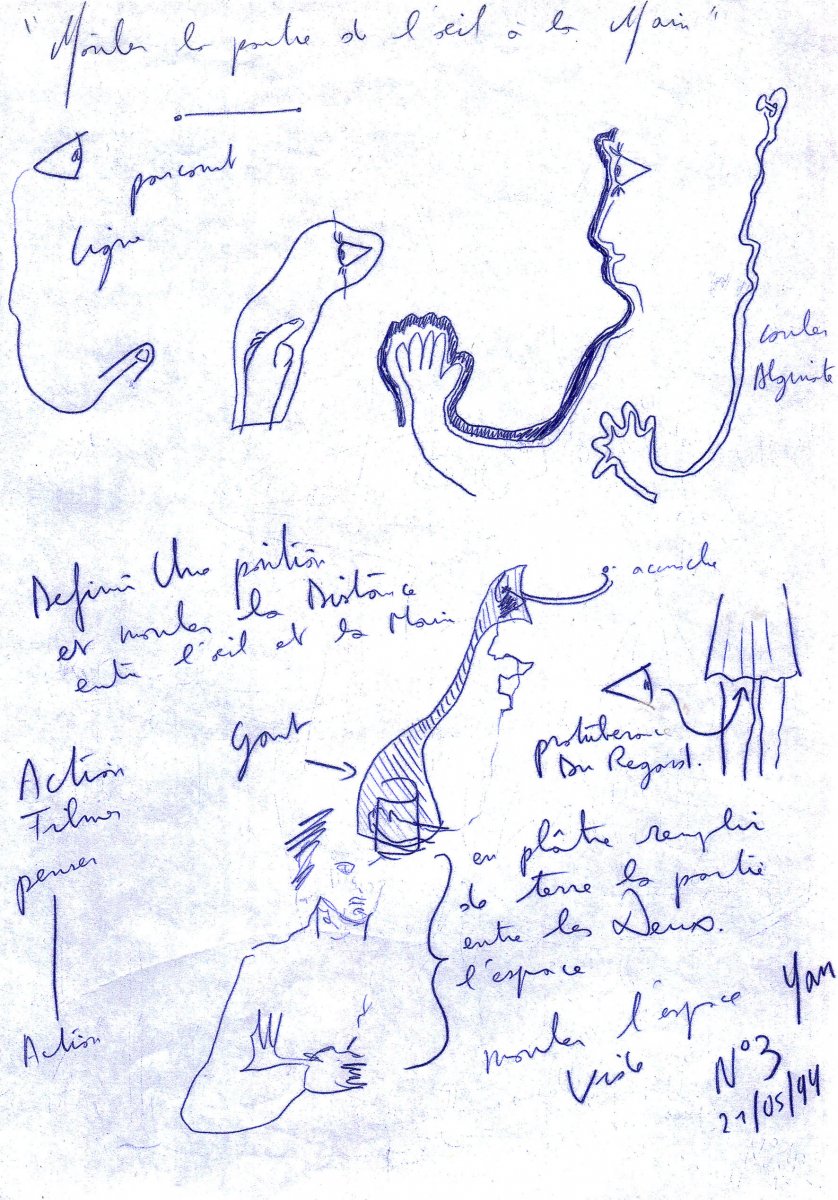 "Mouler la partie de l'œil à la Main"
parcourt
ligne
couler
Alginate
Definir Une position
et mouler la Distance
entre l'œil et la Main
accroche
Gant
protuberance
Du Regard.
Action
Filmer
penser
Action
en plâtre remplir
de terre la partie
entre les Deux.
l'espace
mouler l'espace
Vide
Yan
N°3
21/05/94